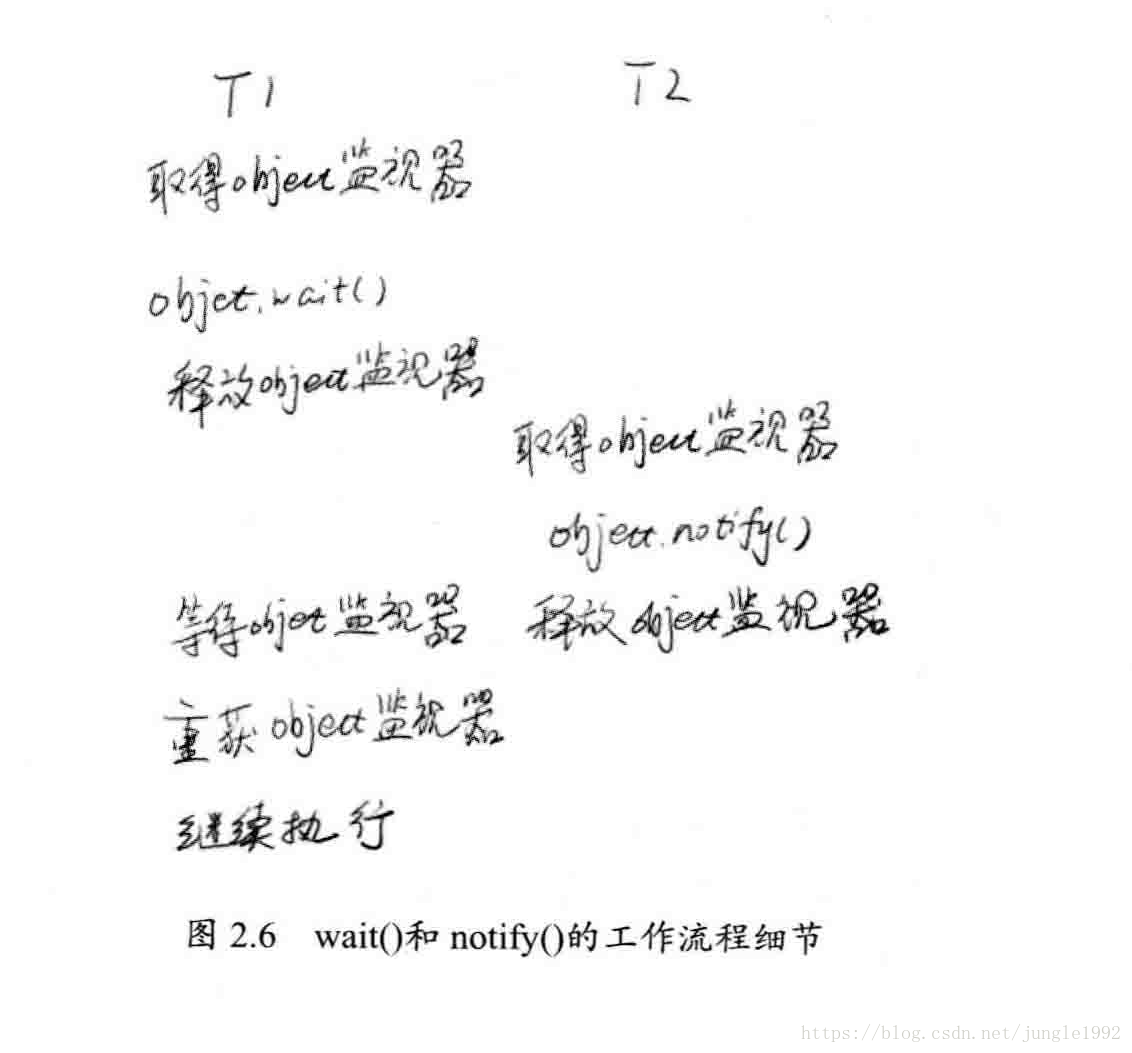 T1 T2
取得object监视器
objet.wait()
释放object监视器
取得object监视器
object.notify()
等待objet监视器 释放object监视器
重获object监视器
继续执行
图 2.6 wait()和 notify()的工作流程细节
https://blog.csdn.net/jungle1992